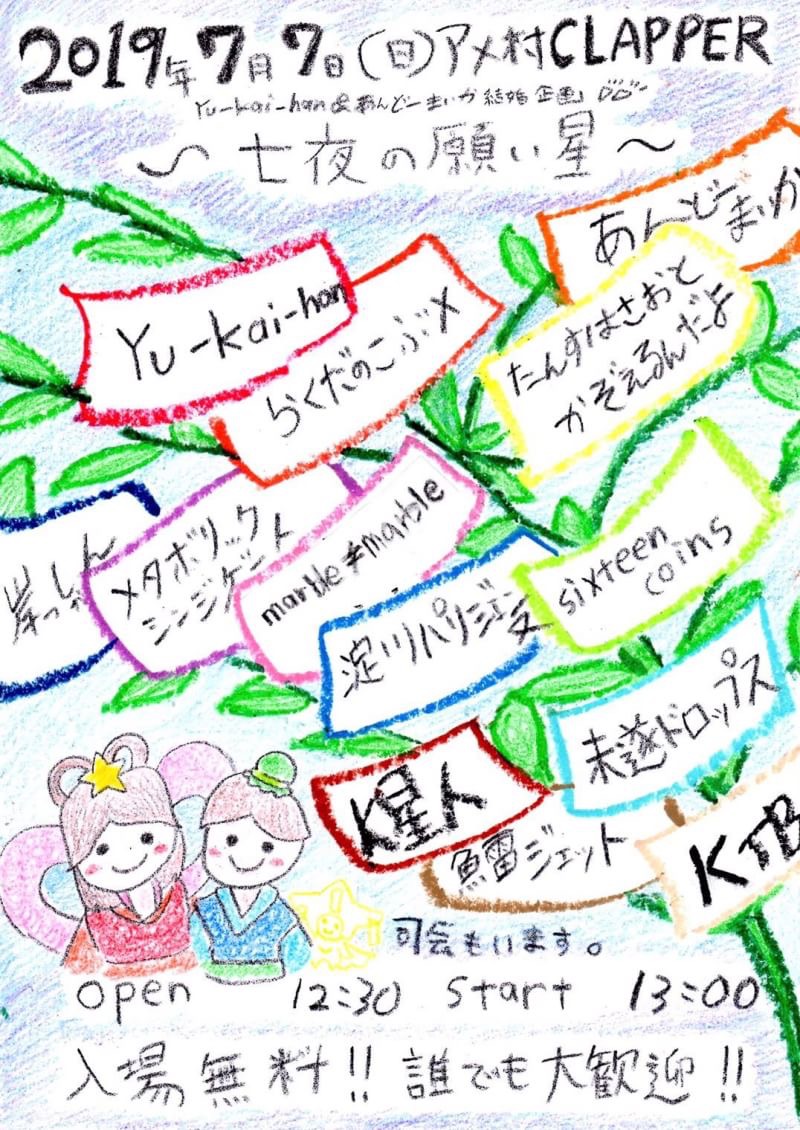 2019年7月7日(日)アメ村CLAPPER
Yu-kai-han&あんどーまいか結婚企画
〜七夜の願い星〜
あんどー
まいか
Yu-kai-han
らくだのこぶX
たんすはさおと
かぞえるんだよ
メタボリック
シンジゲート
marble≠marble
sixteen
coins
淀川パリジェンヌ
未遂ドロップス
K星人
魚雷ジェット
KTB
司会もいます。
open 12:30 start 13:00
入場無料!!誰でも大歓迎!!